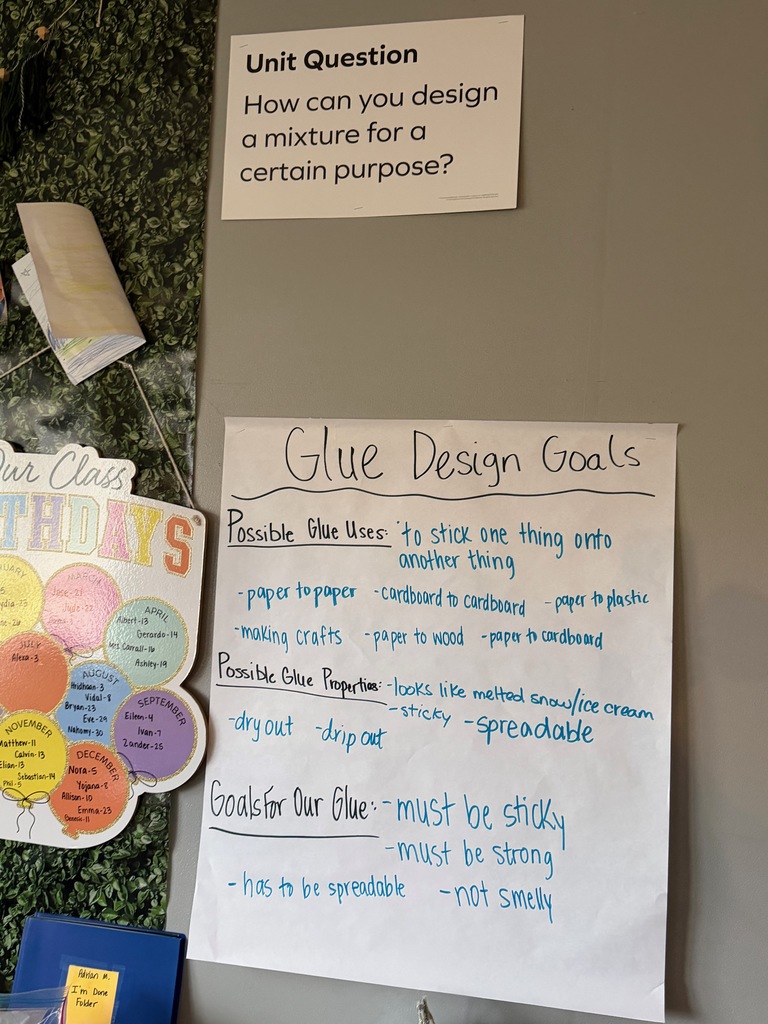 Unit Question
How can you design
a mixture for a
certain purpose?
Glue Design Goals
Possible Glue Uses: to stick one thing onto
another thing
-paper to paper -cardboard to cardboard -paper to plastic
-making crafts -paper to wood -paper to cardboard
Possible Glue Properties: -looks like melted snow/ice cream
-sticky -spreadable
-dry out -drip out
Goals For Our Glue: -must be sticky
-must be strong
-has to be spreadable -not smelly
Our Class
THDAYS
MARCH
APRIL
Albert-13
Gerardo-14
Mrs. Carrall-16
Ashley-19
JULY
Alexa-3
AUGUST
Hridhaan-3
Vidal-8
Bryan-23
Eve-29
Nahomy-30
SEPTEMBER
Eileen-4
Ivan-7
Zander-25
NOVEMBER
Matthew-11
Calvin-13
Elian-13
Sebastian-14
Phil-5
DECEMBER
Nora-5
Yojana-8
Allison-10
Emma-23
Genesis-11
Adrian M.
I'm Done
Folder